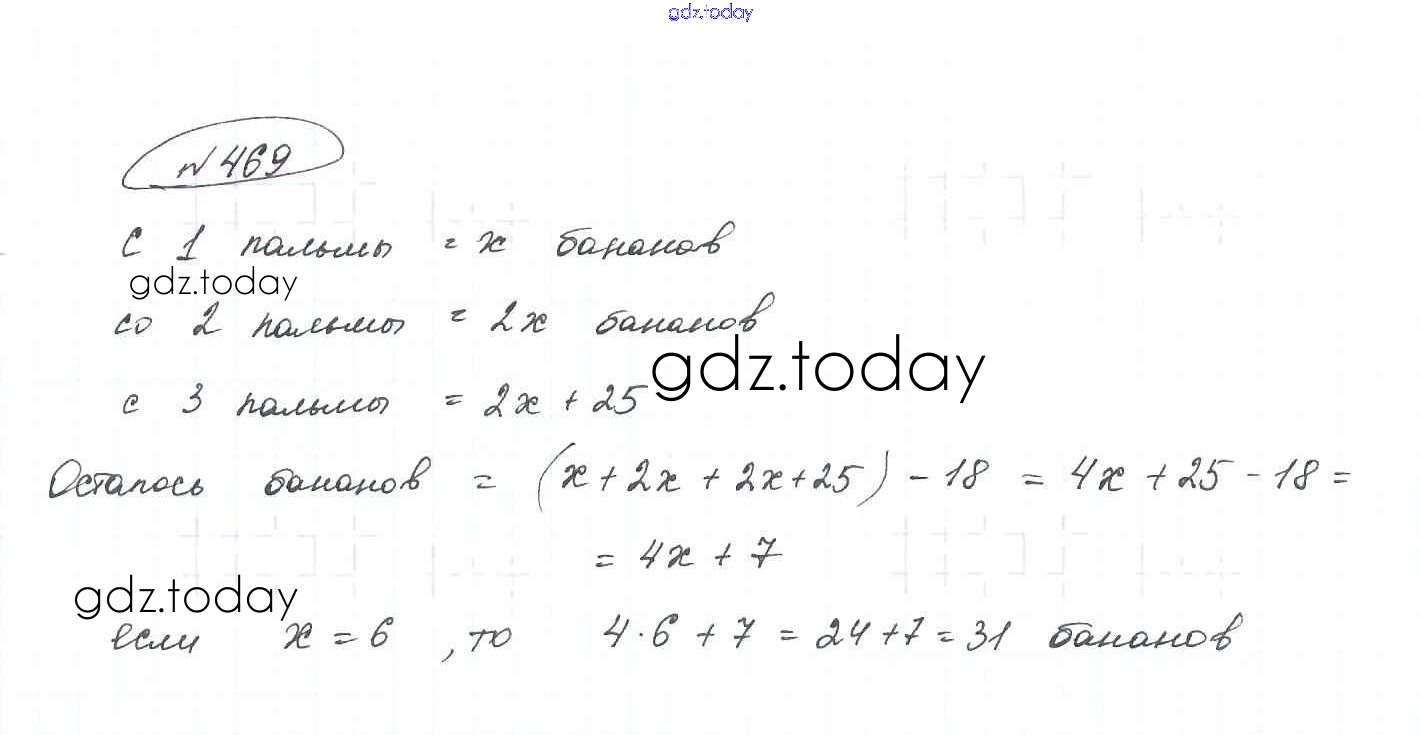 gdz.today
№ 469
С 1 пальмы = x бананов
gdz.today
со 2 пальмы = 2x бананов
gdz.today
с 3 пальмы = 2x + 25
Осталось бананов = (x + 2x + 2x + 25) - 18 = 4x + 25 - 18 =
= 4x + 7
gdz.today
если x = 6 , то 4 · 6 + 7 = 24 + 7 = 31 бананов